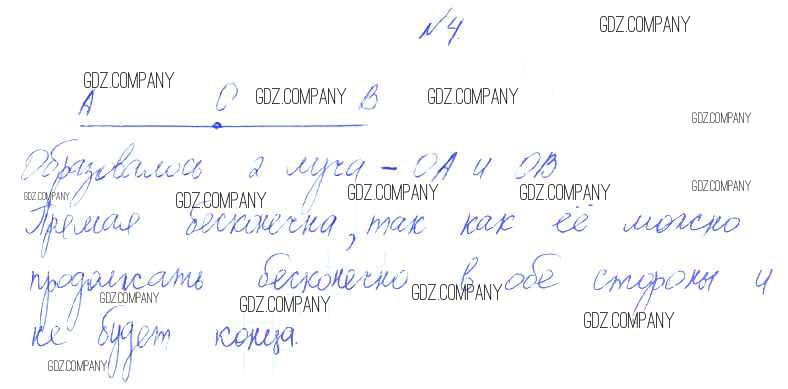 №4.
GDZ.COMPANY
GDZ.COMPANY
A C B
GDZ.COMPANY GDZ.COMPANY
GDZ.COMPANY
Образовалось 2 луча – OA и OB
GDZ.COMPANY GDZ.COMPANY GDZ.COMPANY GDZ.COMPANY GDZ.COMPANY
Прямая бесконечна, так как её можно
продолжать бесконечно в обе стороны и
GDZ.COMPANY GDZ.COMPANY GDZ.COMPANY
GDZ.COMPANY
не будет конца.
GDZ.COMPANY